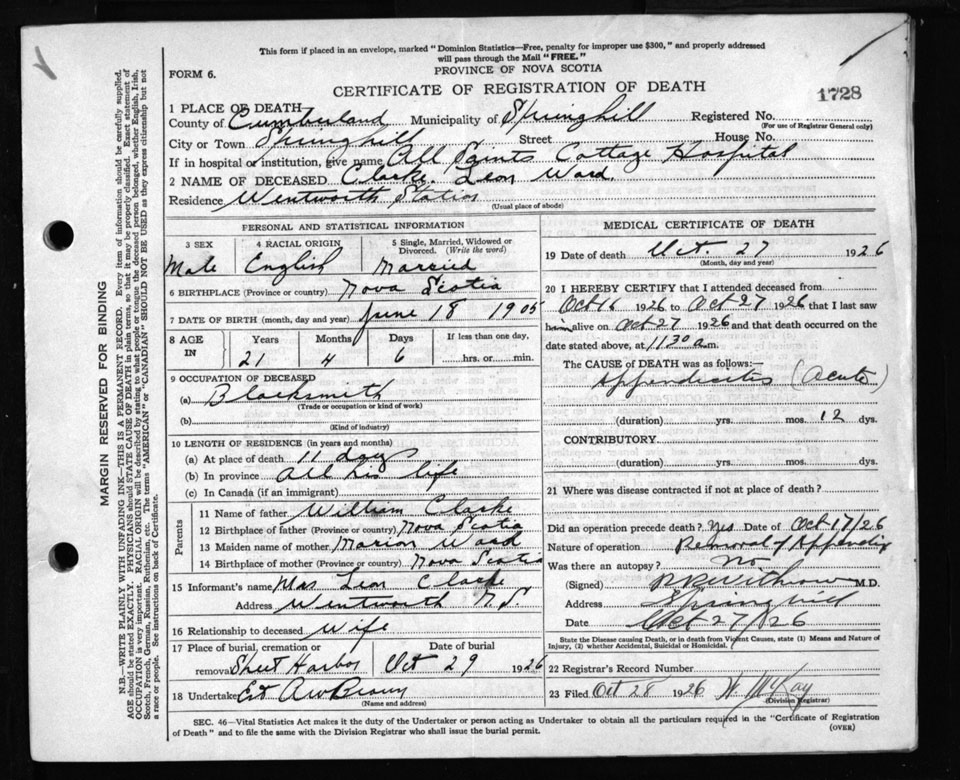 This form if placed in an envelope, marked "Dominion Statistics—Free, penalty for improper use $300," and properly addressed
will pass through the Mail "FREE."
PROVINCE OF NOVA SCOTIA
FORM 6.
CERTIFICATE OF REGISTRATION OF DEATH
1728
1 PLACE OF DEATH
County of Cumberland Municipality of Springhill Registered No.
(For use of Registrar General only)
City or Town Springhill Street House No.
If in hospital or institution, give name All Saints Cottage Hospital
2 NAME OF DECEASED Clarke. Leon Ward
Residence Wentworth Station
(Usual place of abode)
PERSONAL AND STATISTICAL INFORMATION
3 SEX 4 RACIAL ORIGIN 5 Single, Married, Widowed or Divorced. (Write the word)
Male English Married
6 BIRTHPLACE (Province or country) Nova Scotia
7 DATE OF BIRTH (month, day and year) June 18 1905
8 AGE IN Years Months Days If less than one day,
21 4 6 hrs. or min.
9 OCCUPATION OF DECEASED
(a) Blacksmith
(Trade or occupation or kind of work)
(b)
(Kind of industry)
10 LENGTH OF RESIDENCE (in years and months)
(a) At place of death 11 days
(b) In province All his life
(c) In Canada (if an immigrant)
Parents
11 Name of father William Clarke
12 Birthplace of father (Province or country) Nova Scotia
13 Maiden name of mother Marion Ward
14 Birthplace of mother (Province or country) Nova Scotia
15 Informant's name Mrs Leon Clarke
Address Wentworth N.S.
16 Relationship to deceased Wife
17 Place of burial, cremation or removal Date of burial
Sheet Harbor Oct 29 1926
18 Undertaker Ed Brown
(Name and address)
MEDICAL CERTIFICATE OF DEATH
19 Date of death Oct. 27 1926
(Month, day and year)
20 I HEREBY CERTIFY that I attended deceased from
Oct 16 1926 to Oct 27 1926 that I last saw
him alive on Oct 27 1926 and that death occurred on
date stated above, at 11 30 a.m.
The CAUSE of DEATH was as follows:—
Appendicitis (Acute)
(duration) yrs. mos. 12 dys.
CONTRIBUTORY
(duration) yrs. mos. dys.
21 Where was disease contracted if not at place of death?
Did an operation precede death? Yes Date of Oct 17/26
Nature of operation Removal of Appendix
Was there an autopsy? No
(Signed) Withrow M.D.
Address Springhill
Date Oct 27/26
State the Disease causing Death, or in death from Violent Causes, state (1) Means and Nature of
Injury, (2) whether Accidental, Suicidal or Homicidal.
22 Registrar's Record Number
23 Filed Oct 28 1926 McKay
(Division Registrar)
SEC. 46—Vital Statistics Act makes it the duty of the Undertaker or person acting as Undertaker to obtain all the particulars required in the "Certificate of Registration
of Death" and to file the same with the Division Registrar who shall issue the burial permit.
(OVER)
MARGIN RESERVED FOR BINDING
N.B.—WRITE PLAINLY WITH UNFADING INK—THIS IS A PERMANENT RECORD. Every item of information should be carefully supplied.
AGE should be stated EXACTLY. PHYSICIANS should STATE CAUSE OF DEATH in plain terms, so that it may be properly classified. Exact statement of
OCCUPATION is very important. RACIAL ORIGIN will be described by stating to what people or tongue the deceased person belonged, whether English, Irish,
Scotch, French, German, Russian, Ruthenian, etc. The terms "AMERICAN" or "CANADIAN" SHOULD NOT BE USED as they express citizenship but not
a race or people. See instructions on back of Certificate.